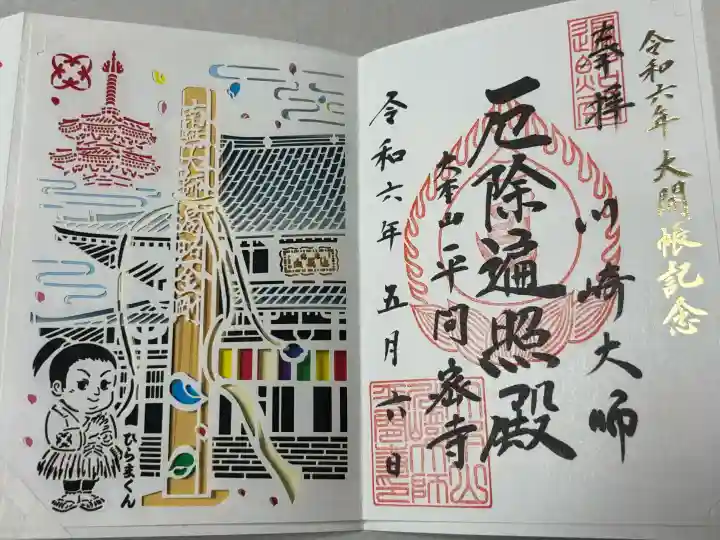 令和六年大開帳記念
奉拝
川崎大師
厄除遍照殿
大本山平間寺
令和六年五月六日
南無大師遍照金剛
ひらまくん